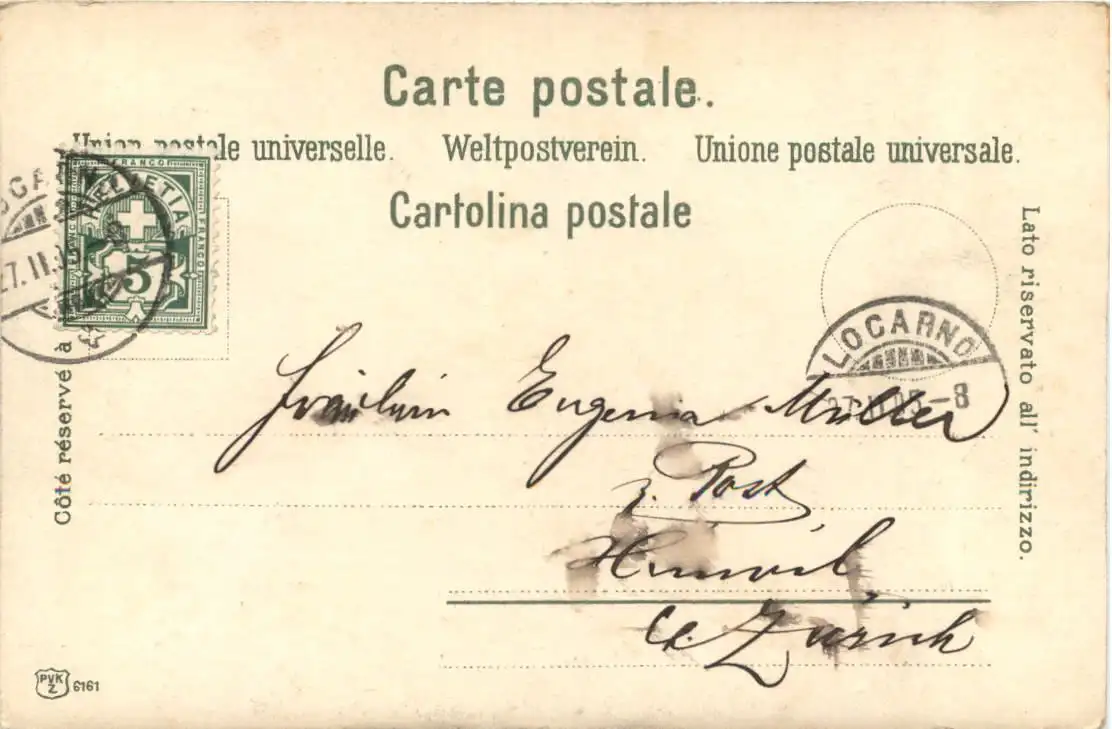 Carte postale.
Union postale universelle. Weltpostverein. Unione postale universale.
Cartolina postale
FRANCO
HELVETIA
FRANCO
5
LOCARNO
Côté réservé à
Lato riservato all' indirizzo.
LOCARNO
-8
Fräulein Eugenia Müller
z. Post
Hinwil
Ct. Zürich
PVK
Z
6161